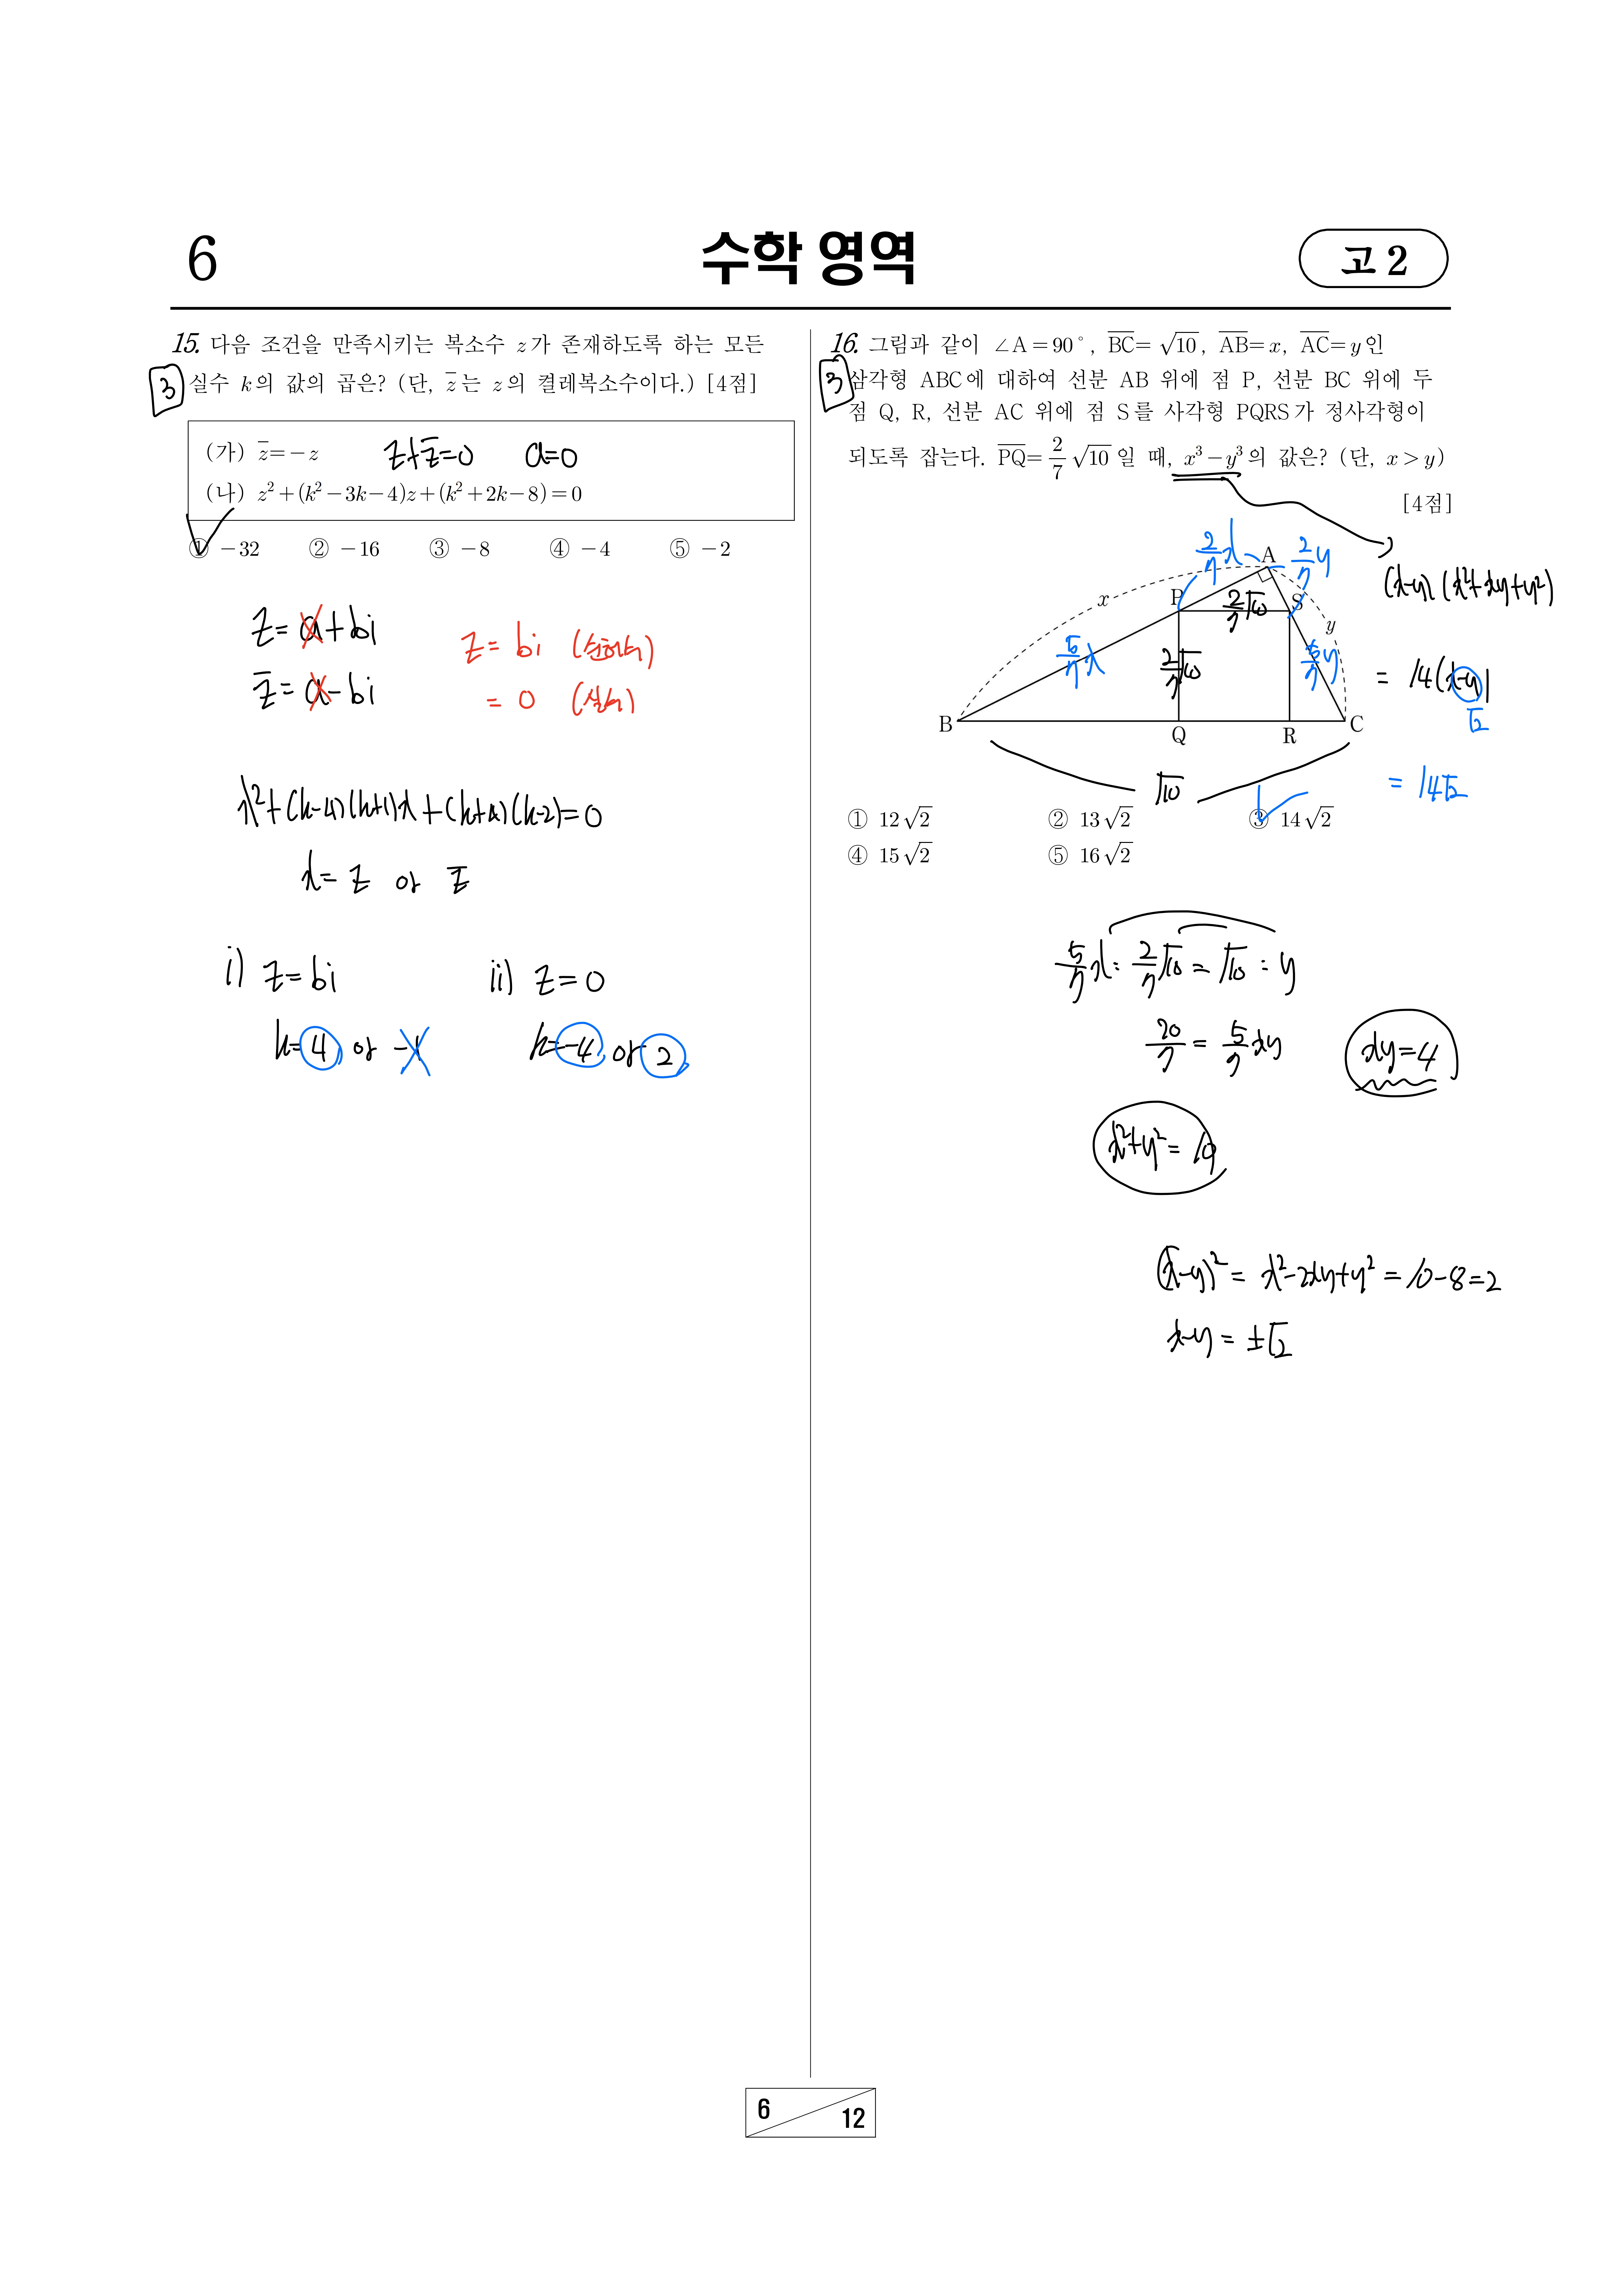 6
수학 영역
고 2
15. 다음 조건을 만족시키는 복소수 z가 존재하도록 하는 모든
3
실수 k의 값의 곱은? (단, z̄는 z의 켤레복소수이다.) [4점]
(가) z̄=−z z+z̄=0 a=0
(나) z²+(k²−3k−4)z+(k²+2k−8)=0
① −32 ② −16 ③ −8 ④ −4 ⑤ −2
z= a+bi
z̄= a-bi
z= bi (순허수)
= 0 (실수)
x²+(k-4)(k+1)x+(k+4)(k-2)=0
x= z or z̄
i) z=bi
k=4 or -1
ii) z=0
k=-4 or 2
16. 그림과 같이 ∠A=90°, BC=√10, AB=x, AC=y인
3
삼각형 ABC에 대하여 선분 AB 위에 점 P, 선분 BC 위에 두
점 Q, R, 선분 AC 위에 점 S를 사각형 PQRS가 정사각형이
되도록 잡는다. PQ=2/7 √10 일 때, x³−y³의 값은? (단, x>y)
[4점]
2/7 x A 2/7 y
(x-y)(x²+xy+y²)
x P 2/7 √10 S y
5/7 x 2/7 √10 5/7 y
= 14(x-y)
√2
B Q R C
√10
= 14√2
① 12√2 ② 13√2 ③ 14√2
④ 15√2 ⑤ 16√2
5/7 x : 2/7 √10 = √10 : y
20/7 = 5/7 xy xy=4
x²+y²= 10
(x-y)² = x²-2xy+y² = 10-8=2
x-y = ±√2
6
12